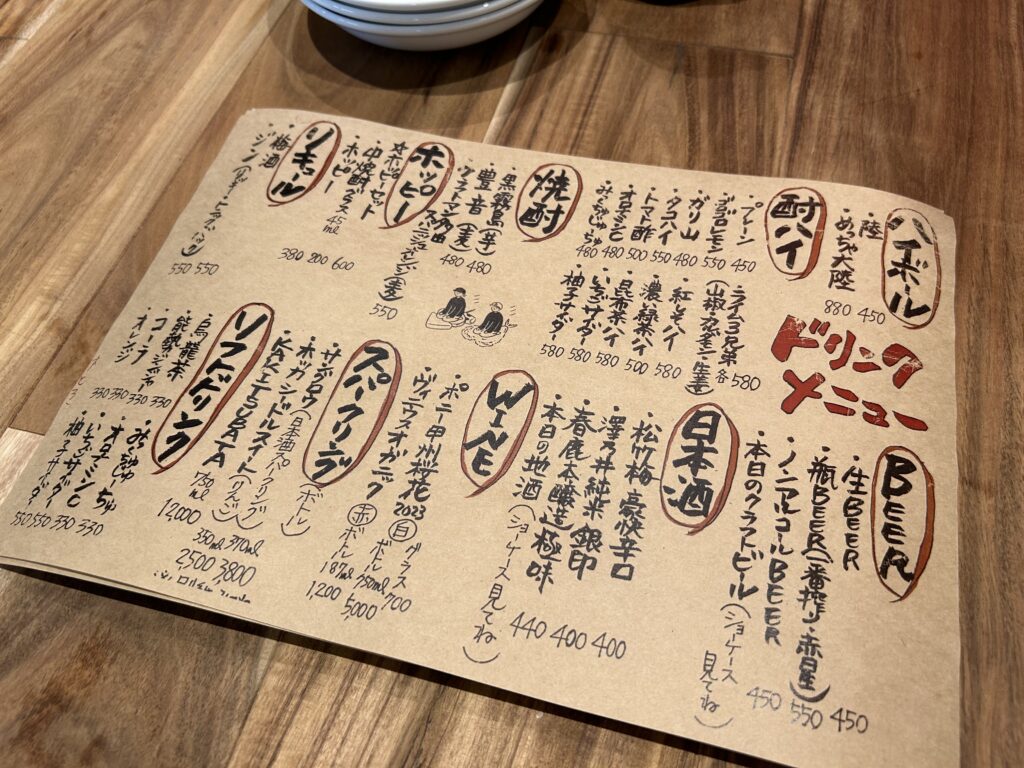 ドリンク
メニュー
ハイボール
・陸 450
・めっちゃ大陸 880
酎ハイ
・プレーン 450
・ゴロゴロレモン 550
・ガリ山 480
・タコハイ 550
・トマト酢 500
・オロナミンC 480
・みっちゅちゅ 480
・ライム3兄弟 各580
・紅しょうハイ 580
・濃い緑茶ハイ 500
・昆布茶ハイ 580
・いちごサイダー 580
・柚子サイダー 580
焼酎
・黒霧島(芋) 480
・豊音(麦) 480
550
ホッピー
☆ホッピーセット 600
・中焼酎グラス 200
・ホッピー 380
リキュール
・梅酒 550
・ジン 550
BEER
・生BEER 450
・瓶BEER(一番搾り・赤星) 550
・ノンアルコールBEER 450
・本日のクラフトビール(ショーケース見てね)
日本酒
・松竹梅 豪快辛口 400
・澤乃井純米 銀印 400
・春鹿本醸造 極味 440
・本日の地酒(ショーケース見てね)
WINE
・ポニー甲州桜花2023 (白) グラス 700
ボトル 750ml 5,000
・ヴィニウスオーガニック (赤) ボトル 187ml 1,200
スパークリング
(日本酒スパークリング) (ボトル)
370ml 3,800
(りんご) 330ml 2500
・KAKITSUBATA 750ml 12,000
ソフトドリンク
・烏龍茶 330
・能勢ジンジャー 330
・コーラ 330
・オレンジ 330
・みっちゅちゅ 330
・オロナミンC 330
・いちごサイダー 550
・柚子サイダー 550